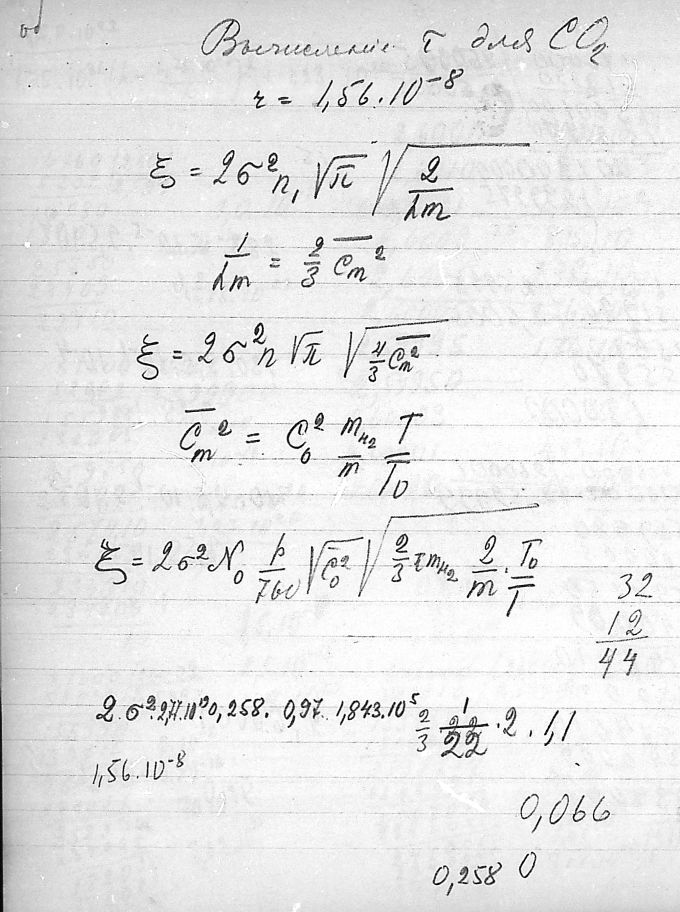 Вычисление τ для CO₂
r = 1,56.10⁻⁸
ξ = 2σ²n₁ √π √(2/λm)
1/λm = 2/3 C̅m²
ξ = 2σ²n √π √(4/3 C̅m²)
C̅m² = C₀² mH₂/m T/T₀
ξ = 2σ²N₀ p/760 √C̅₀² √(2/3 π mH₂ 2/m · T₀/T)
32
12
44
2.σ².2,77.10¹⁹.0,258. 0,97. 1,843.10⁵ 2/3 1/22 · 2 . 1,1
1,56.10⁻⁸
0,066
0,258 0